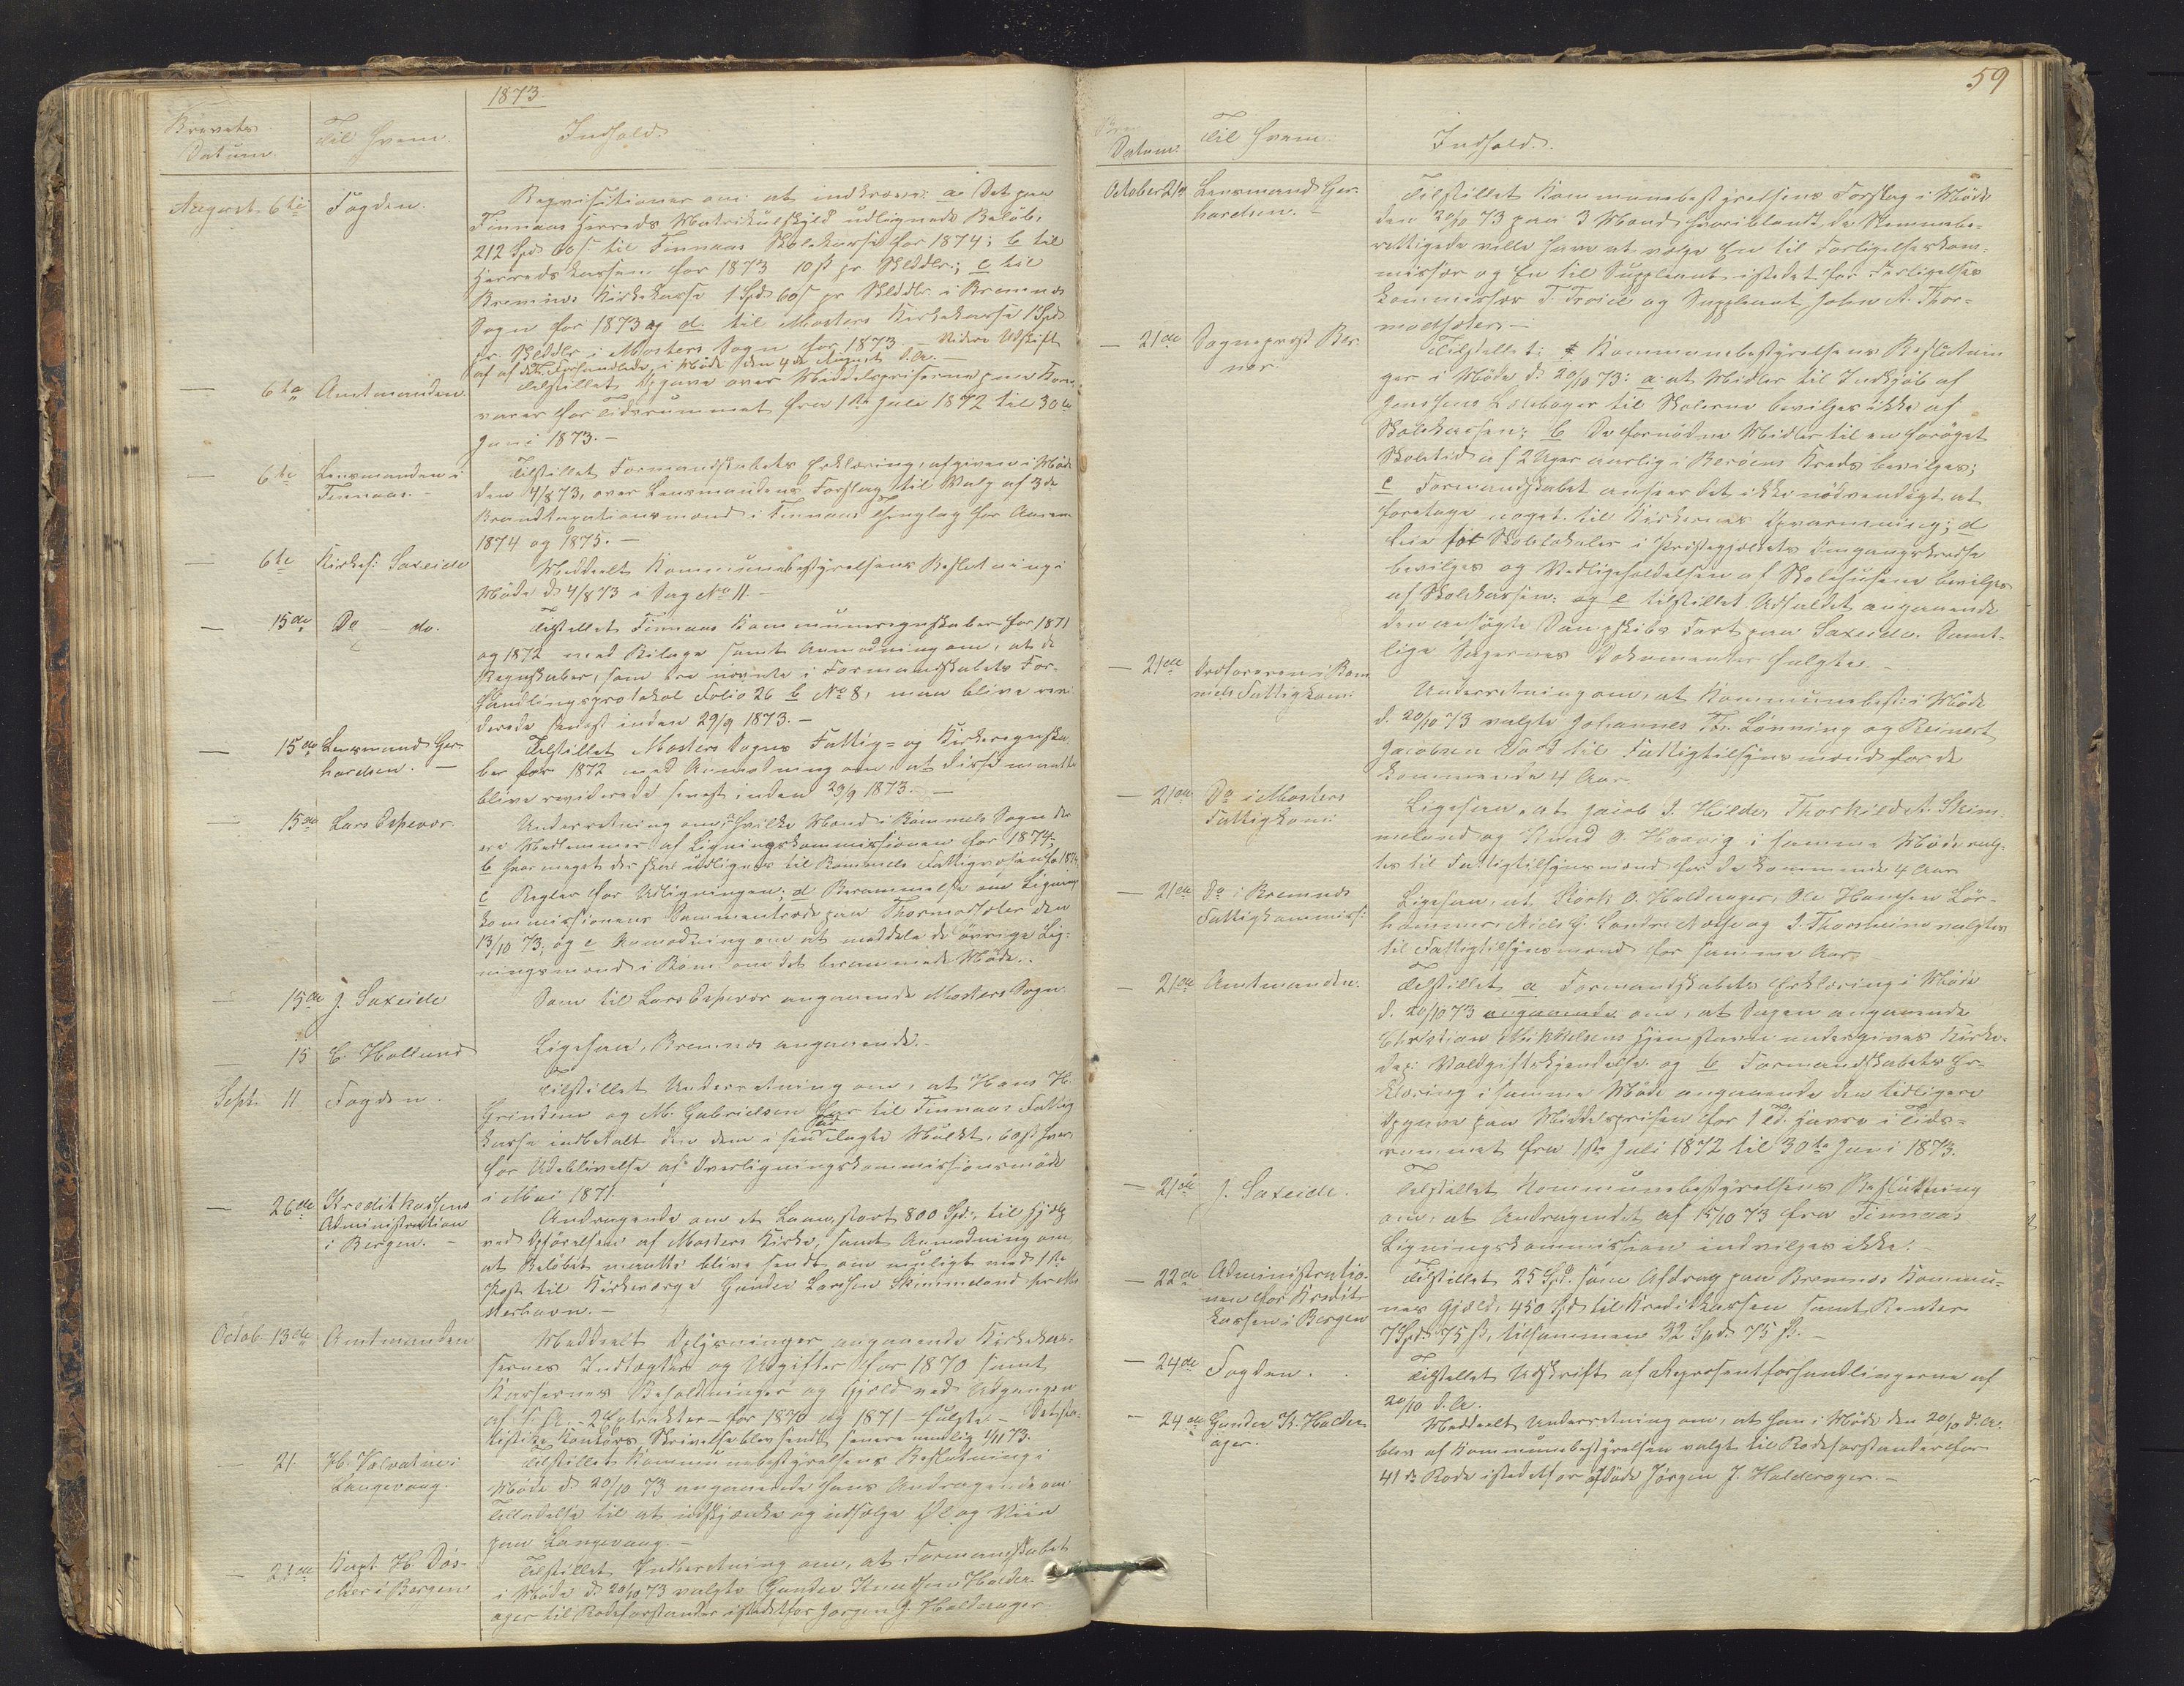 1873.
Brevets
Datum
Til hvem.
Indhold.
August 6te
Fogden.
Reqvisitioner om at indkræve: a. Det paa
Finnaas Herreds Matrikulskyld udlignede Beløb,
212 Spd. 60 s. til Finnaas Skolekasse for 1874; b til
Herredskassen for 1873 10 ß pr Skylddlr.; c til
Bremnes Kirkekasse 1 Spd 60 s pr Skylddlr i Bremnes
Sogn for 1873 og d. til Mosters Kirkekasse 1 Spd
pr. Skylddlr i Mosters Sogn for 1873. — Videre Udskrift
af af det Forhandlede i Møde den 4de August d. A. —
— 6te
Amtmanden
Tilstillet Opgave over Middelpriserne paa Korn-
varer for Tidsrummet fra 1ste Juli 1872 til 30te
Juni 1873. —
— 6te
Lensmanden i
Finnaas. —
Tilstillet Formandskabets Erklæring, afgiven i Møde
den 4/8 73, over Lensmandens Forslag til Valg af 3de
Brandtaxationsmænd i Finnaas Thinglag for Aarene
1874 og 1875. —
— 6te
Kirkes: Saxeide
Meddeelt Kommunebestyrelsens Beslutning i
Møde d. 4/8 73 i Sag No 11. —
— 15de
Do do.
Tilstillet Finnaas Kommuneregnskaber for 1871
og 1872 med Bilage samt Anmodning om, at de
Regnskaber, som ere nævnte i Formandskabets For-
handlingsprotokol Folio 26 b No 8, maa blive revi-
derede senest inden 29/9 1873. —
— 15de
Lensmand Ger-
hardsen. —
Tilstillet Mosters Sogns Fattig- og Kirkeregnska-
ber for 1872 med Anmodning om, at disse maatte
blive reviderede senest inden 29/9 1873. —
— 15de
Lars Espevær.
Underretning om, a hvilke Mænd i Bømmels Sogn der
ere Medlemmer af Ligningskommissionen for 1874,
b hvor meget der skal udlignes til Bømmels Fattigvæsen for 1874
c Regler for Udligningen; d Berammelse om Lignings-
kommissionens Sammentræde paa Thormodsæter den
13/10 73; og e Anmodning om at meddele de øvrige Lig-
ningsmænd i Bøm. om det berammede Møde. —
— 15de
J. Saxeide
Som til Lars Espevær angaaende Mosters Sogn.
— 15
C. Hollund
Ligesaa, Bremnes angaaende. —
Sept. 11
Fogden.
Tilstillet Underretning om, at Hans H.
Grinden og M. Gabrielsen har til Finnaas Fattig-
kasse indbetalt den dem i sin Tid ilagte Mulkt, 60 ß hver,
for Udeblivelse af Overligningskommissionsmøde
i Mai 1871.
— 26de
Kreditkassens
Administration
i Bergen. —
Andragende om et Laan, stort 800 Spd., til Hjælp
ved Opførelsen af Mosters Kirke, samt Anmodning om,
at Beløbet maatte blive sendt om muligt med 1ste
Post til Kirkeværge Gunder Larssen Skimmeland pr Mo-
sterhavn. —
Octob. 13de
Amtmanden
Meddeelt Oplysninger angaaende Kirkekas-
sernes Indtægter og Udgifter for 1870 samt
Kassernes Beholdninger og Gjæld ved Udgangen
af s. A. — 2 Extrakter — for 1870 og 1871 — fulgte. — Det sta-
tistiske Kontors Skrivelse blev sendt senere nemlig 1/11 73.
— 21
H. Valvatne i
Langevaag.
Tilstillet Kommunebestyrelsens Beslutning i
Møde d. 20/10 73 angaaende hans Andragende om
Tilladelse til at udskjænke og udsælge Øl og Viin
paa Langevaag. —
— 21de
Kapt. H. Døs-
cher i Bergen
Tilstillet Indberetning om, at Formandskabet
i Møde d. 20/10 73 valgte Gunder Knudsen Halder-
ager til Rodeforstander istedetfor Jørgen J. Halderager
59
Datum.
Til hvem.
Indhold.
October 21de
Lensmand Ger-
hardsen. —
Tilstillet Kommunebestyrelsens Forslag i Møde
den 20/10 73 paa 3 Mænd, hvoriblandt de Stemmebe-
rettigede ville have at vælge En til Forligelseskom-
missær og En til Suppleant istedet for Forligelses-
kommissær T. Troid og Suppleant John A. Thor-
modsæter. —
— 21de
Sogneprest Ber-
ner.
Tilstillet Kommunebestyrelsens Beslutnin-
ger i Møde d. 20/10 73: a. at Midler til Indkjøb af
Jensens Læsebøger til Skolerne bevilges ikke af
Skolekassen; b De fornødne Midler til en forøget
Skoletid af 2 Uger aarlig i Berøens Kreds bevilges;
c Formandskabet anseer det ikke nødvendigt at
foretage noget til Kirkernes Opvarmning; d
Leie for Skolelokaler i Prestegjældets Omgangskredse
bevilges og Vedligeholdelsen af Skolehusene bevilges
af Skolekassen: og e tilstillet Udfaldet angaaende
den ansøgte Dampskibs Fart paa Saxeide. Samt-
lige Sagernes Dokumenter fulgte. —
— 21de
Ordføreren i Bøm-
mels Fattigkom:
Underretning om, at Kommunebest: i Møde
d. 20/10 73 valgte Johannes Th. Lønning og Reinert
Jacobsen Vold til Fattigtilsynsmænd for de
kommende 4 Aar.
— 21de
Do i Mosters
Fattigkom:
Ligesaa, at Jacob J. Hilder, Thorkild A. Skim-
meland og Knud O. Haavig i samme Møde valg-
tes til Fattigtilsynsmænd for de kommende 4 Aar
— 21de
do i Bremnes
Fattigkommiss:
Ligesaa, at Størk O. Halderager, Ole Hansen Lør-
hammer, Niels G. Søndre Notse og J. Thorsheim valgtes
til Fattigtilsynsmænd for samme Aar.
— 21de
Amtmanden.
Tilstillet a Formandskabets Erklæring i Møde
d. 20/10 73 angaaende om, at Sagen angaaende
Christian Mikkelsens Hjemstavn undergives Kirke-
dep: Voldgiftskjendelse og b Formandskabets Er-
klæring i samme Møde angaaende den tidligere
Opgave paa Middelprisen for 1 Td. Havre i Tids-
rummet fra 1ste Juli 1872 til 30te Juni 1873.
— 21de
J. Saxeide.
Tilstillet Kommunebestyrelsens Beslutning
om, at Andragendet af 15/10 73 fra Finnaas
Ligningskommission indvilges ikke.
— 22de
Administratio-
nen for Kredit-
kassen i Bergen
Tilstillet 25 Spd. som Afdrag paa Bremnes Kommu-
nes Gjæld, 450 Spd til Kreditkassen samt Renter
7 Spd 75 ß, tilsammen 32 Spd. 75 ß. —
— 24de
Fogden.
Tilstillet Udskrift af Repræsentforhandlingerne af
20/10 d. A.
— 24de
Gunder K. Halder-
ager.
Meddeelt Underretning om, at han i Møde den 20/10 d. A.
blev af Kommunebestyrelsen valgt til Rodeforstander for
41de Rode istedetfor afdøde Jørgen J. Halderager. —